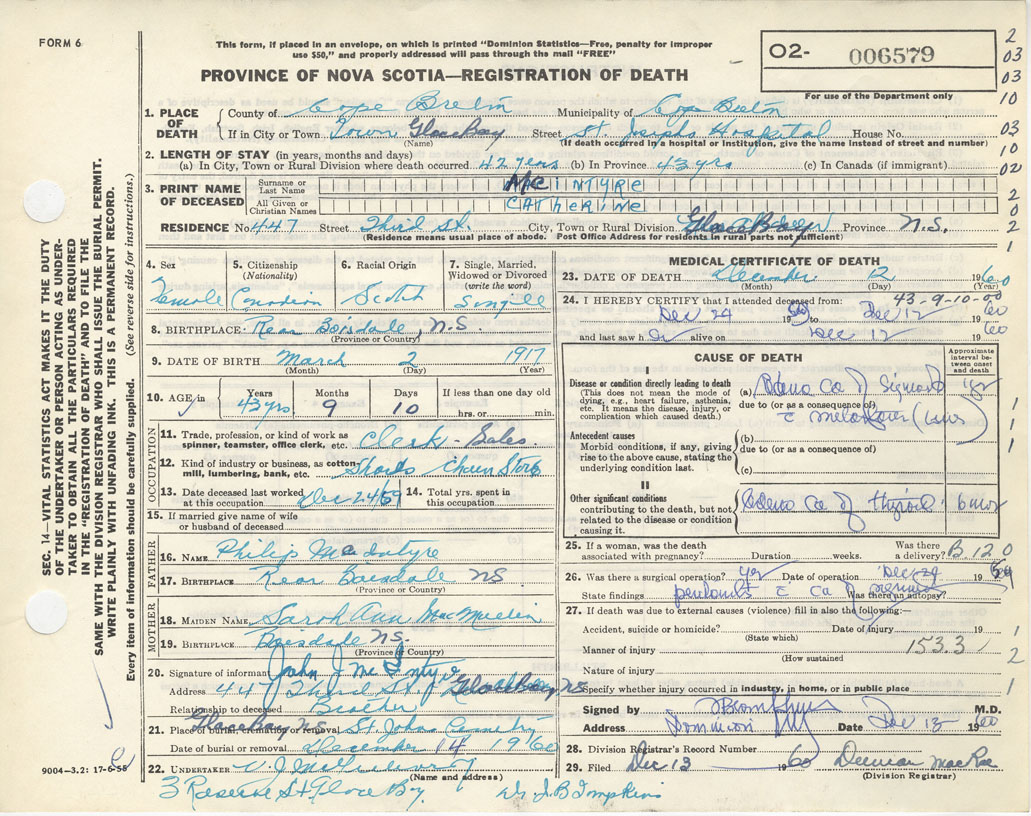 FORM 6
This form, if placed in an envelope, on which is printed "Dominion Statistics—Free, penalty for improper
use $50," and properly addressed will pass through the mail "FREE"
PROVINCE OF NOVA SCOTIA—REGISTRATION OF DEATH
O2- 006579
For use of the Department only
2
03
03
10
03
10
02
2
0
2
1
1. PLACE OF DEATH
County of Cape Breton Municipality of Cape Breton
If in City or Town Town Glace Bay Street St. Josephs Hospital House No.
(Name) (If death occurred in a hospital or institution, give the name instead of street and number)
2. LENGTH OF STAY (in years, months and days)
(a) In City, Town or Rural Division where death occurred 42 years (b) In Province 43 yrs (c) In Canada (if immigrant)
3. PRINT NAME OF DECEASED
Surname or Last Name McINTYRE
All Given or Christian Names CATHERINE
RESIDENCE No. 447 Street Third St. City, Town or Rural Division Glace Bay Province N.S.
(Residence means usual place of abode. Post Office Address for residents in rural parts not sufficient)
4. Sex Female
5. Citizenship (Nationality) Canadian
6. Racial Origin Scotch
7. Single, Married, Widowed or Divorced (write the word) Single
8. BIRTHPLACE: Rear Boisdale, N.S.
(Province or Country)
9. DATE OF BIRTH March 2 1917
(Month) (Day) (Year)
10. AGE in Years 43 yrs Months 9 Days 10 If less than one day old
hrs. or min.
OCCUPATION
11. Trade, profession, or kind of work as spinner, teamster, office clerk, etc. Clerk - Sales
12. Kind of industry or business, as cotton mill, lumbering, bank, etc. Chain Store
13. Date deceased last worked at this occupation Dec 24/59
14. Total yrs. spent in this occupation
15. If married give name of wife or husband of deceased
FATHER
16. NAME Philip MacIntyre
17. BIRTHPLACE Rear Boisdale NS
(Province or Country)
MOTHER
18. MAIDEN NAME Sarah Ann
19. BIRTHPLACE Boisdale NS.
(Province or Country)
20. Signature of informant John J McIntyre
Address 447 Third St. Glace Bay NS
Relationship to deceased Brother
21. Place of burial, cremation or removal Glace Bay NS St Johns Cemetery
Date of burial or removal December 14 1960
22. UNDERTAKER
(Name and address)
3 Reserve St Glace Bay. Dr. J B Tompkins
MEDICAL CERTIFICATE OF DEATH
23. DATE OF DEATH December 12 1960
(Month) (Day) (Year)
24. I HEREBY CERTIFY that I attended deceased from: 43-9-10-00
Dec 24 19 Dec 12 1960
and last saw h er alive on Dec 12 1960
CAUSE OF DEATH
Approximate interval between onset and death
I
Disease or condition directly leading to death
(This does not mean the mode of dying, e.g., heart failure, asthenia, etc. It means the disease, injury, or complication which caused death.)
(a) Adeno Ca of Sigmoid 1 yr
due to (or as a consequence of)
Antecedent causes
Morbid conditions, if any, giving rise to the above cause, stating the underlying condition last.
(b)
due to (or as a consequence of)
(c)
II
Other significant conditions contributing to the death, but not related to the disease or condition causing it.
Adeno Ca of thyroid 6 mos
1
1
1
25. If a woman, was the death associated with pregnancy? Duration weeks. Was there a delivery? B. 12 0
26. Was there a surgical operation? yes Date of operation Dec 29 1959
State findings Was there an autopsy?
27. If death was due to external causes (violence) fill in also the following:—
Accident, suicide or homicide? Date of injury 19
(State which)
Manner of injury 153.3
(How sustained)
Nature of injury
Specify whether injury occurred in industry, in home, or in public place
1
2
1
Signed by M.D.
Address Dominion Date Dec 13 1960
28. Division Registrar's Record Number
29. Filed Dec 13 1960
(Division Registrar)
SEC. 14—VITAL STATISTICS ACT MAKES IT THE DUTY
OF THE UNDERTAKER OR PERSON ACTING AS UNDER-
TAKER TO OBTAIN ALL THE PARTICULARS REQUIRED
IN THE "REGISTRATION OF DEATH" AND TO FILE THE
SAME WITH THE DIVISION REGISTRAR WHO SHALL ISSUE THE BURIAL PERMIT.
WRITE PLAINLY WITH UNFADING INK. THIS IS A PERMANENT RECORD.
Every item of information should be carefully supplied. (See reverse side for instructions.)
9004-3.2: 17-6-58